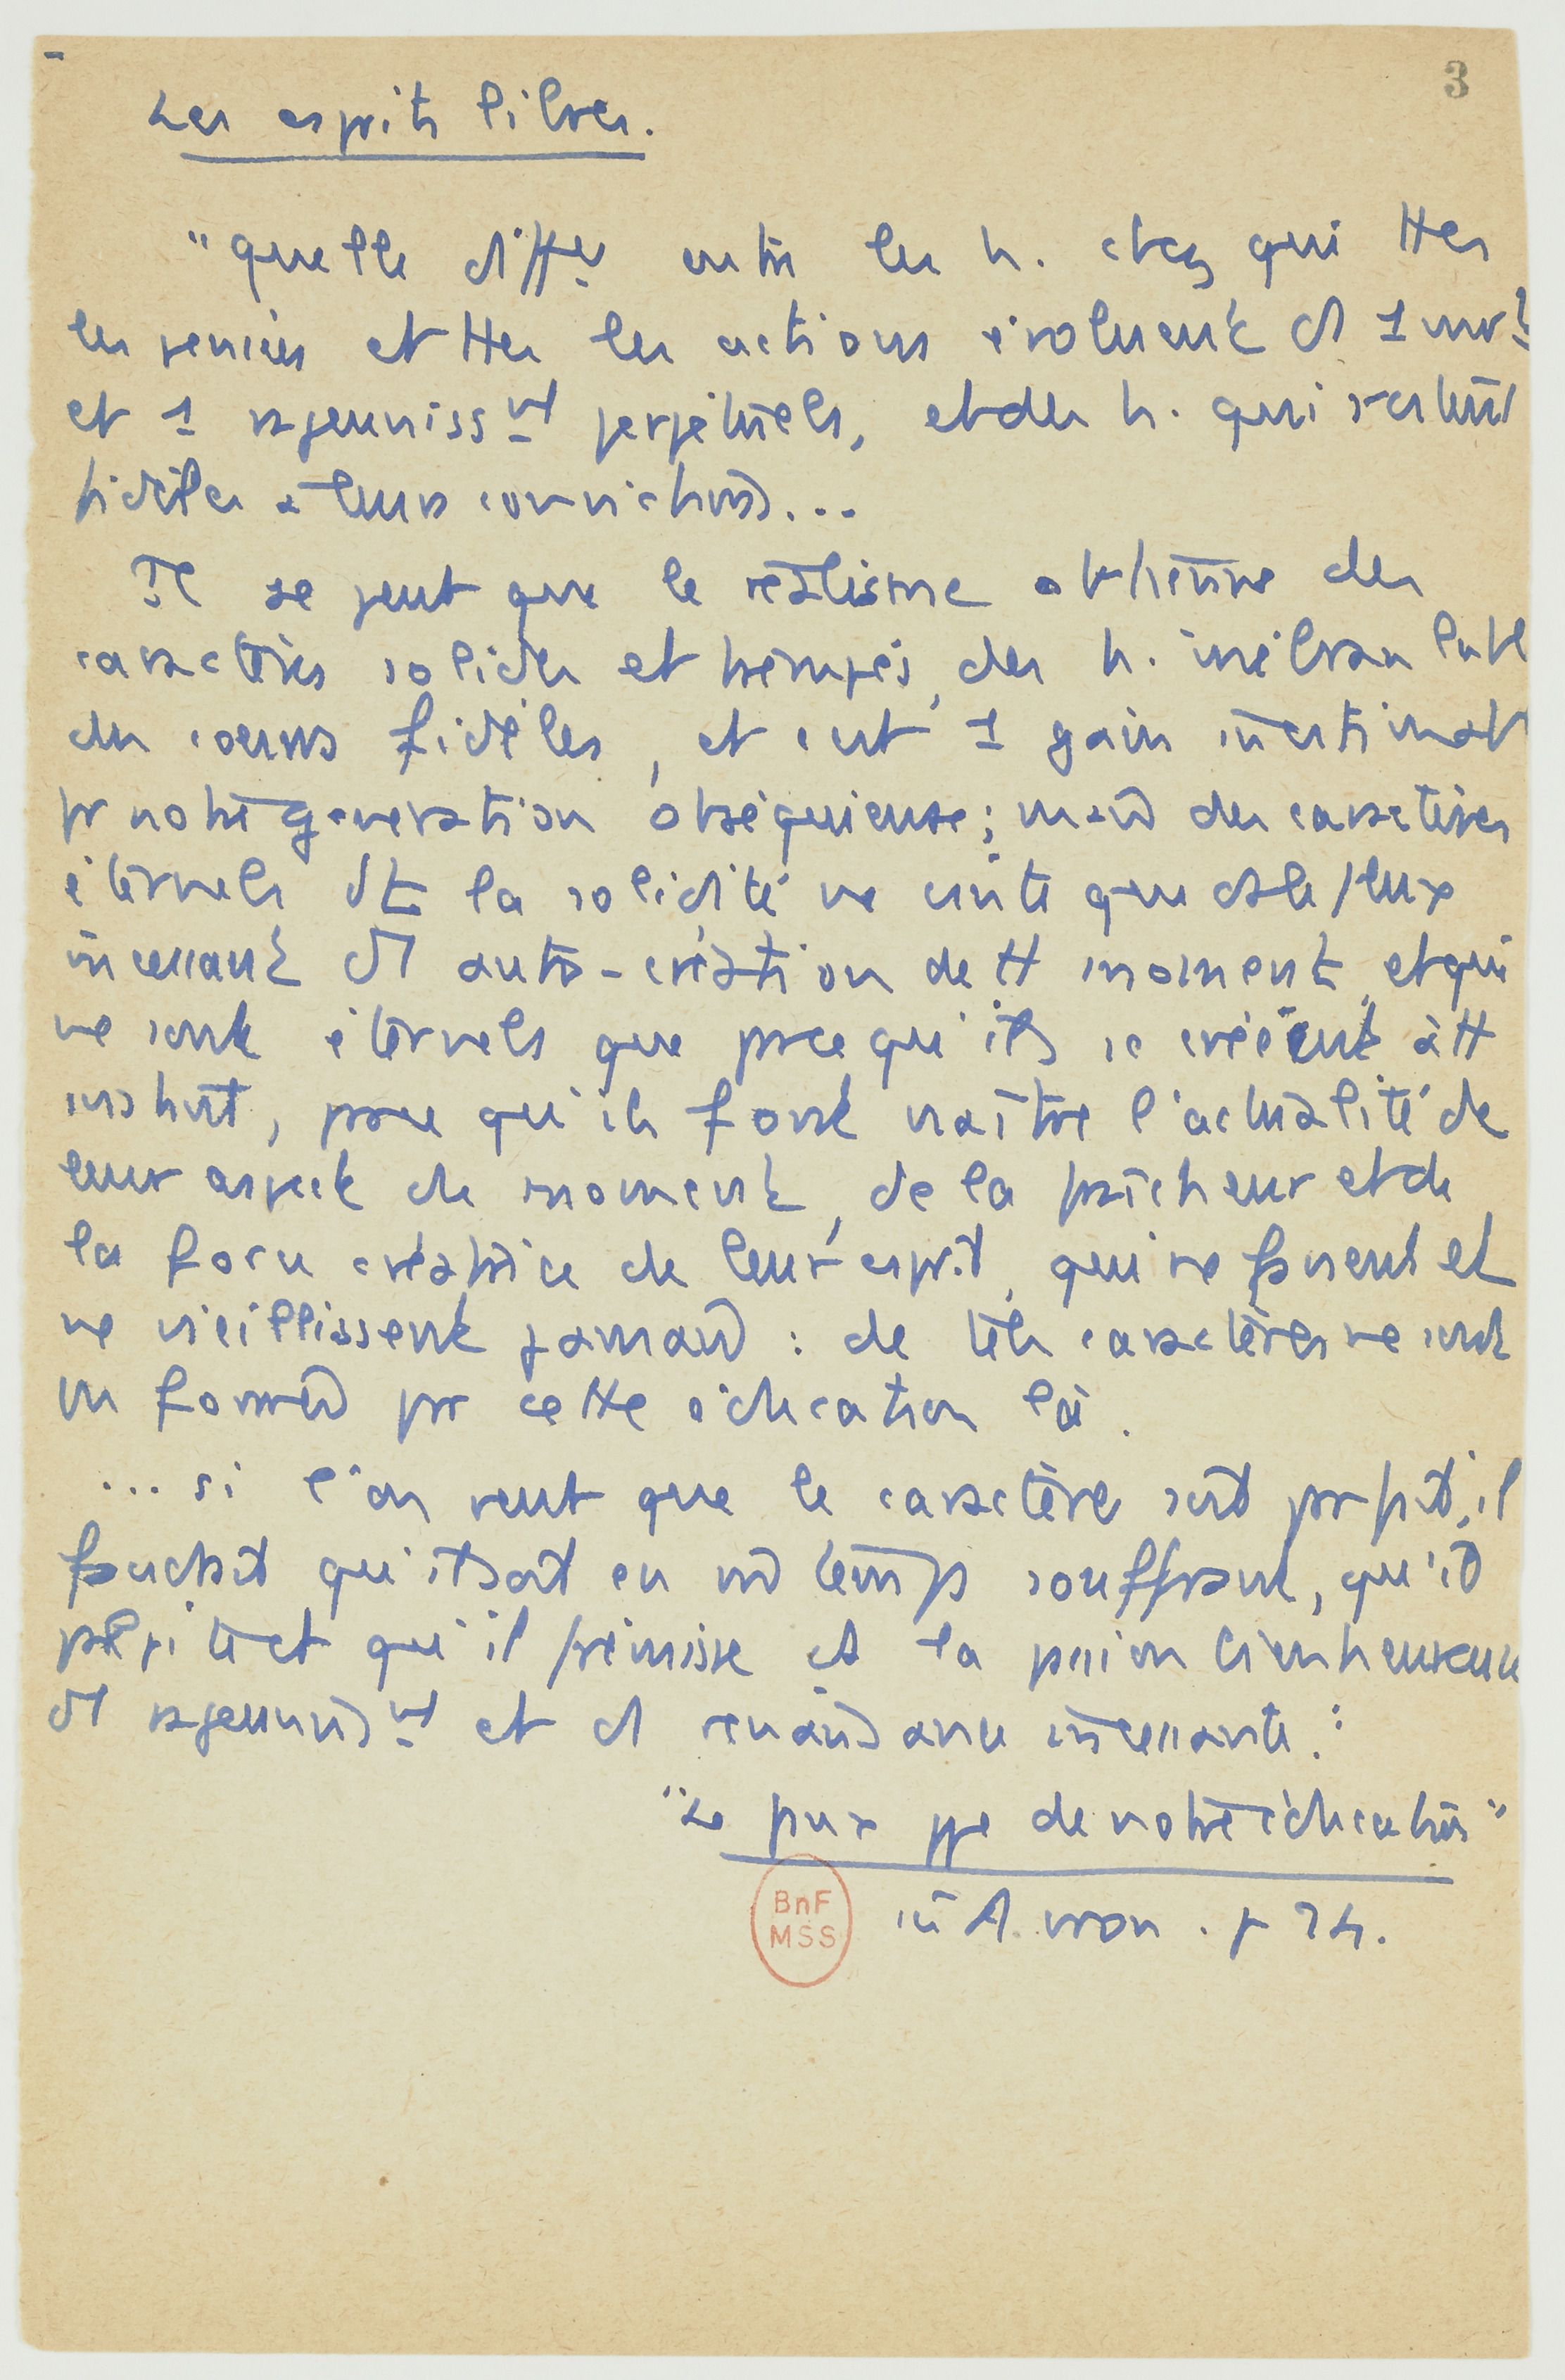 3
Les esprits libres.
"quelle diff_ce_ entre les h. chez qui ttes
les pensées et ttes les actions évoluent ds 1 mvt
et 1 rajeuniss_nt_ perpétuels, et des h. qui restent
fidèles à leurs convictions...
Il se peut que le réalisme obtienne des
caractères solides et trempés, des h. inébranlabl
des coeurs fidèles, et c'est 1 gain inestimabl
pr notre génération obséquieuse ; mais des caractères
éternels dt la solidité ne existe que ds le flux
incessant ds auto-création de tt moment, et qui
ne sont éternels que parce qu'ils se créèent à tt
instant, parce qu'ils font naître l'actualité de
leur aspect de moment, de la fraîcheur et de
la force créatrice de leur esprit, qui ne fanent et
ne vieillissent jamais : de tels caractères ne sont
formés par cette éducation là.
... si l'on veut que le caractère soit parfait, il
faudrait qu'il soit en m temps souffrant, qu'il
palpite et qu'il frémisse ds la passion bienheureuse
ds rajeuniss_nt_ et ds renaissance incessante."
"Le faux ppe de notre éducation"
in A. von . p 74.
BnF
MSS